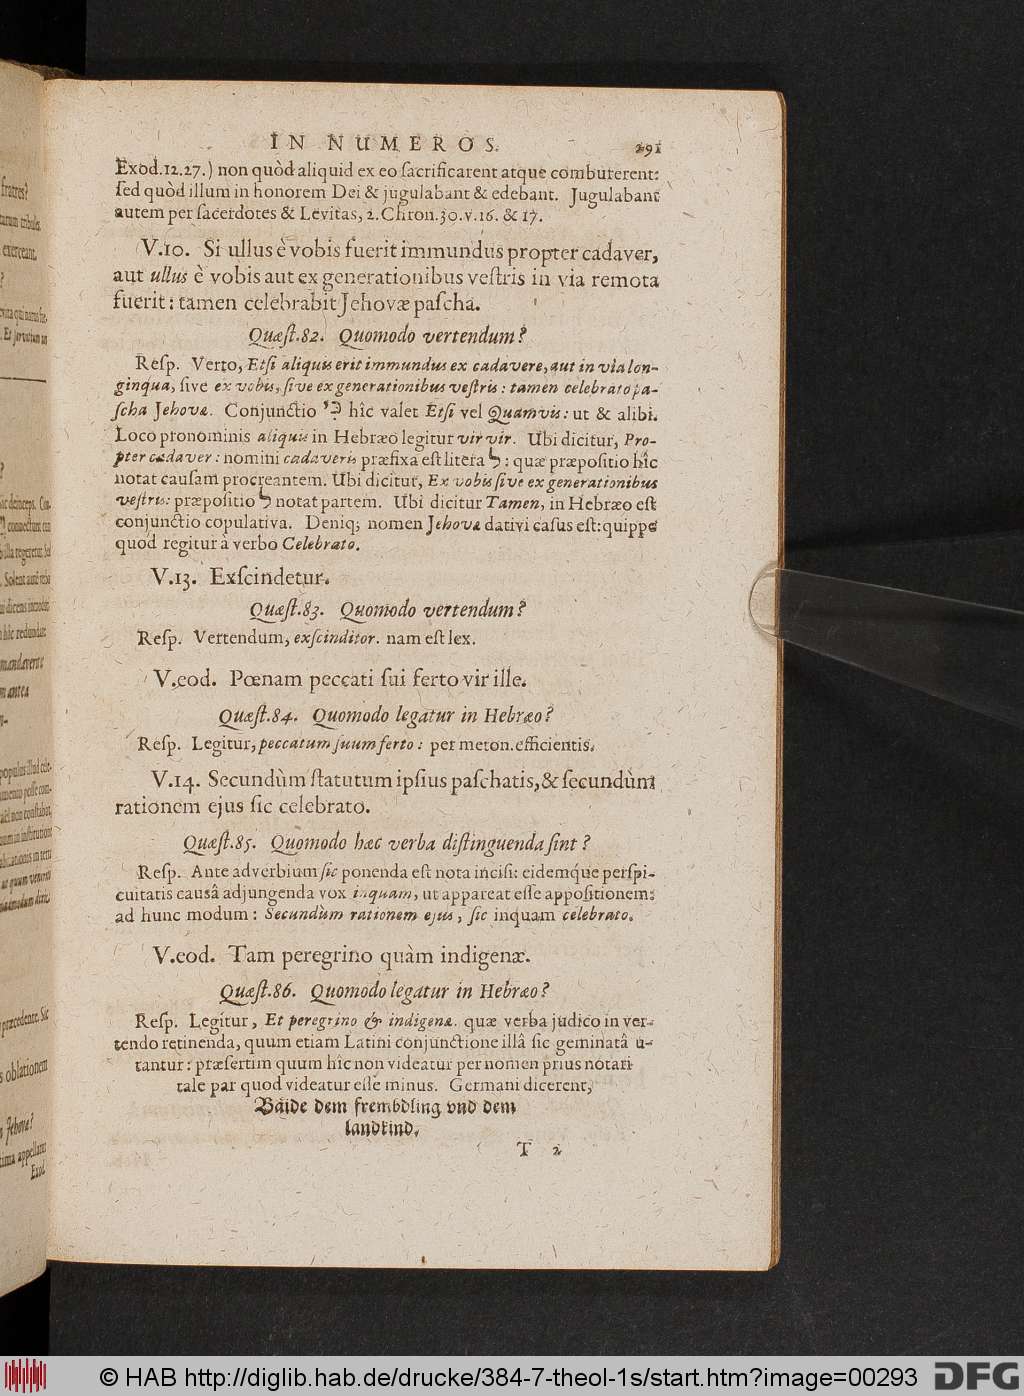 IN NUMEROS. 291
Exod.12.27.) non quòd aliquid ex eo sacrificarent atque combuterent:
sed quòd illum in honorem Dei & jugulabant & edebant. Jugulabant
autem per sacerdotes & Levitas, 2. Chron.30.v.16. & 17.
V.10. Si ullus è vobis fuerit immundus propter cadaver,
aut ullus è vobis aut ex generationibus vestris in via remota
fuerit: tamen celebrabit Jehovæ pascha.
Quæst.82. Quomodo vertendum?
Resp. Verto, Etsi aliquis erit immundus ex cadavere, aut in via lon-
ginqua, sive ex vobis, sive ex generationibus vestris: tamen celebrato pa-
scha Jehovæ. Conjunctio כִּי hîc valet Etsi vel Quamvis: ut & alibi.
Loco pronominis aliquis in Hebræo legitur vir vir. Ubi dicitur, Pro-
pter cadaver: nomini cadaveris præfixa est litera ל: quæ præpositio hîc
notat causam procreantem. Ubi dicitur, Ex vobis sive ex generationibus
vestris: præpositio ל notat partem. Ubi dicitur Tamen, in Hebræo est
conjunctio copulativa. Deniq; nomen Jehovæ dativi casus est: quippe
quod regitur à verbo Celebrato.
V.13. Exscindetur.
Quæst.83. Quomodo vertendum?
Resp. Vertendum, exscinditor. nam est lex.
V.eod. Pœnam peccati sui ferto vir ille.
Quæst.84. Quomodo legatur in Hebræo?
Resp. Legitur, peccatum suum ferto: per meton. efficientis.
V.14. Secundùm statutum ipsius paschatis, & secundùm
rationem ejus sic celebrato.
Quæst.85. Quomodo hæc verba distinguenda sint?
Resp. Ante adverbium sic ponenda est nota incisi: eidemq́ue perspi-
cuitatis causâ adjungenda vox inquam, ut appareat esse appositionem:
ad hunc modum: Secundùm rationem ejus, sic inquam celebrato.
V.eod. Tam peregrino quàm indigenæ.
Quæst.86. Quomodo legatur in Hebræo?
Resp. Legitur, Et peregrino & indigenæ. quæ verba judico in ver-
tendo retinenda, quum etiam Latini conjunctione illâ sic geminatâ u-
tantur: præsertim quum hîc non videatur per nomen prius notari
tale par quod videatur esse minus. Germani dicerent,
Baide dem frembdling vnd dem
landkind.
T 2
© HAB http://diglib.hab.de/drucke/384-7-theol-1s/start.htm?image=00293
DFG